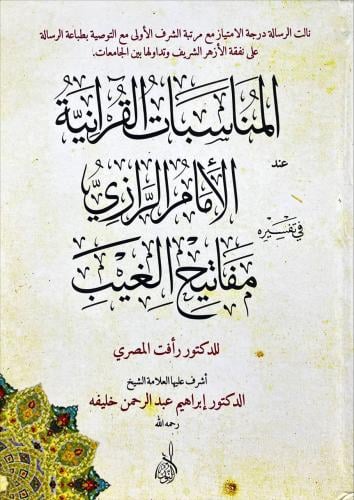 نالت الرسالة درجة الامتياز مع مرتبة الشرف الأولى مع التوصية بطباعة الرسالة
على نفقة الأزهر الشريف وتداولها بين الجامعات.
المناسبات القرآنية
عند
الإمام الرازي
في تفسيره
مفاتيح الغيب
للدكتور رأفت المصري
أشرف عليها العلامة الشيخ
الدكتور إبراهيم عبد الرحمن خليفه
رحمه الله